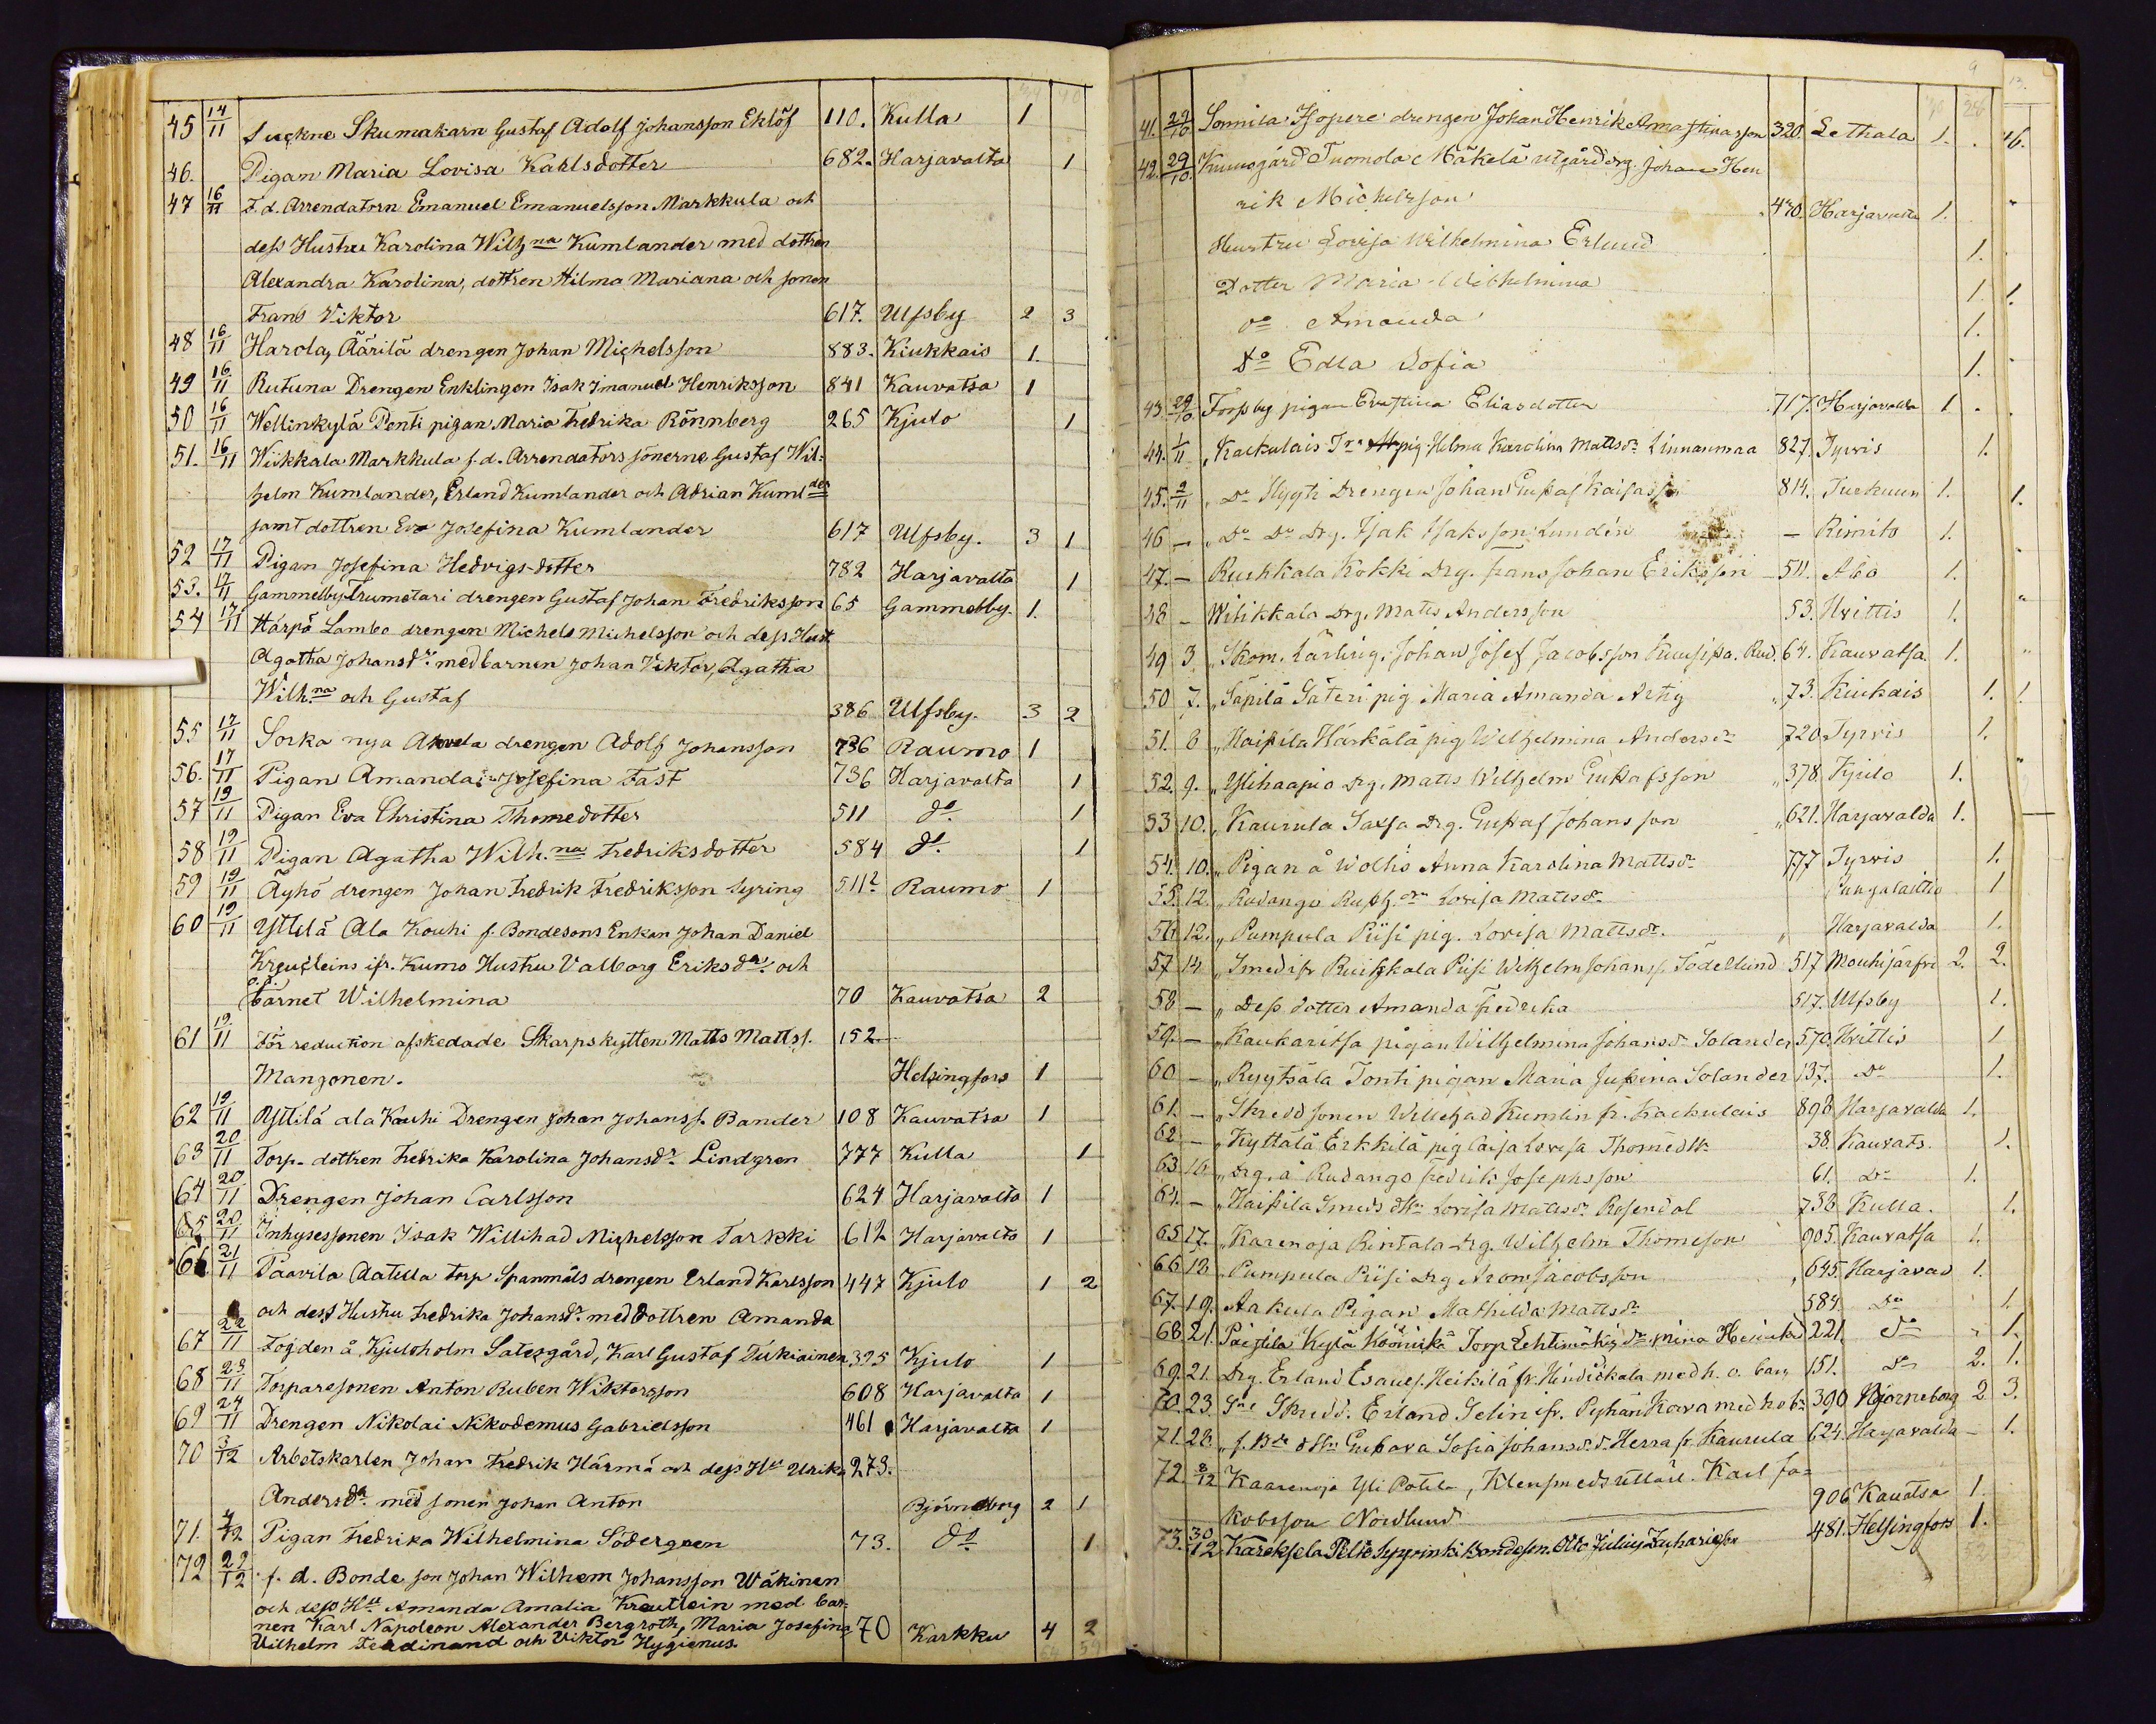 45 14/11 Suckne Skumakarn Gustaf Adolf Johansson Eklöf 110. Kulla 1
46. Pigan Maria Lovisa Karlsdotter 682. Harjavalta 1
47 16/11 F. d. Arrendatorn Emanuel Emanuelsson Markkula och
dess Hustru Karolina Wilh:na Kumlander med dottren
Alexandra Karolina, dottren Hilma Mariana och sonen
Frans Viktor 617. Ulfsby 2 3
48 16/11 Harola, Äärilä drengen Johan Michelsson 883. Kiukkais 1.
49 16/11 Rutuna Drengen Enklingen Isak Imanuel Henriksson 841 Kauvatsa 1
50 16/11 Wellinkylä Penti pigan Maria Fredrika Rönnberg 265 Kjulo 1
51. 16/11 Wiikkala Markkula f. d. Arrendators sönerne Gustaf Wil-
helm Kumlander, Erland Kumlander och Adrian Kuml:der
samt dottren Eva Josefina Kumlander 617 Ulfsby. 3 1
52 17/11 Pigan Josefina Hedvigs-dotter 782 Harjavalta 1
53. 17/11 Gammelby Trumetari drengen Gustaf Johan Fredriksson 65 Gammelby. 1.
54 17/11 Härpö Lambo drengen Michels Michelsson och dess Hust
Agatha Johansd:r med barnen Johan Viktor, Agatha
Wilh:na och Gustaf 386 Ulfsby. 3 2
55 17/11 Sorka nya drengen Adolf Johansson 736 Raumo 1
56. 17/11 Pigan Amanda Josefina Fast 736 Harjavalta 1
57 19/11 Pigan Eva Christina Thomedotter 511 d:o 1
58 19/11 Pigan Agatha Wilh:na Fredriksdotter 584 d:o 1
59 19/11 Äyhö drengen Johan Fredrik Fredriksson Syring 511 2 Raumo 1
60 19/11 Yttilä Ala Kouhi f. Bondesons Enkan Johan Daniel
Kreutleins ifr. Kumo Hustru Valborg Eriksd:r och
o.ä.
barnet Wilhelmina 70 Kauvatsa 2
61 19/11 För reduction afskedade Skarpskytten Matts Mattss. 152
Mangonen. Helsingfors 1
62 19/11 Yttilä ala Kouhi Drengen Johan Johanss. Bander 108 Kauvatsa 1
63 20/11 Torp-dottren Fredrika Karolina Johansd:r Lindgren 777 Kulla 1
64 20/11 Drengen Johan Carlsson 624 Harjavalta 1
65 20/11 Inhysessonen Isak Willihad Michelsson Tarkki 612 Harjavalta 1
66 21/11 Paavila Aatilla torp Spanmäls drengen Erland Karlsson 447 Kjulo 1 2
och dess Hustru Fredrika Johansd:r med dottren Amanda
67 22/11 Fogden å Kjuloholm Säterigård, Karl Gustaf Tukiainen 395 Kjulo 1
68 23/11 Torparesonen Anton Ruben Wiktorsson 608 Harjavalta 1
69 24/11 Drengen Nikolai Nikodemus Gabrielsson 461 Harjavalta 1
70 3/12 Arbetskarlen Johan Fredrik Härmä och dess H:u Ulrika 273.
Andersd:r med sonen Johan Anton Björneborg 2 1
71. 4/12 Pigan Fredrika Wilhelmina Södergren 73. d:o 1
72 29/12 f. d. Bonde son Johan Wilhem Johansson Wäkinen
och dess H:u Amanda Amalia Kreutlein med bar-
nen Karl Napoleon Alexander Bergroth, Maria Josefina 70 Karkku 4 2
Vilhelm Ferdinand och Viktor Hygienus.
9
41. 29/10 Sonnila Isopere drengen Johan Henrik Annastinasson 320. Lethala 1.
42. 29/10. Kumogård Tuomola Mäkelä utgård drg. Johan Hen
rik Michelsson 470. Harjavalta 1.
Hustru Lovisa Wilhelmina Erlund 1.
Dotter Maria Wilhelmina 1.
d:o Amanda 1.
D:o Edla Sofia 1.
43. 29/10. Forssby pigan Evastina Eliasdotter 717. Harjavalta 1.
44. 1/11 Kaekulais pig Hilma Karolina Mattsd:r Linnanmaa 827. Tyrvis 1.
45. 2/11 D:o Hygti Drengen Johan Gustaf Kaisasson 814. 1.
46 — D:o D:o Drg. Isak Isaksson Lundén — Rimito 1.
47. — Ruskkala Kokki Drg. Frans Johan Eriksson 511. Åbo 1.
48 — Wiikkala Drg. Matts Andersson 53. Hvittis 1.
49 3. Skom. Lärling. Johan Josef Jacobsson Rud. 64. Kauvatsa. 1.
50 7. Säpilä Säteri pig. Maria Amanda Artig 73. Kiukais 1.
51. 8 Haistila Härkälä pig Wilhelmina Andersd:r 720 Tyrvis 1.
52. 9. Ylihaapio Drg. Matts Wilhelm Gustafsson 378. Kjulo 1.
53 10. Kaurula Saxsa Drg. Gustaf Johansson 621. Harjavalda 1.
54. 10. Pigan å Wollis Anna Karolina Mattsd:r 777 Tyrvis 1.
55. 12. Rudango Lovisa Mattsd:r Pungalaitio 1
56. 12. Pumpula Piisi pig. Lovisa Mattsd:r. Harjavalda 1.
57 14. Smedifr Ruiskkala Piisi Wilhelm Johanss. Södellund 517 Mouhijärfvi 2. 2.
58 — Dess dotter Amanda Fredrika 517. Ulfsby 1.
59. — Kaukaritsa pigan Wilhelmina Johansd:r Solander 570. Hvittis 1
60 — Ryytsälä Tonti pigan Maria Justina Solander 137. D:o 1.
61. — Skredd sonen Willehad Kumlin fr. Kaekulais 898 Harjavalda 1.
62 — Kyttälä Erkkilä pig Caisa Lovisa Thomedtr 38. Kauvats. 1.
63. 16. Drg. å Rudango Fredrik Josephsson 61. D:o 1.
64. — Haistila Smeds dtr. Lovisa Mattsd:r Rosendal 738 Kulla. 1.
65 17. Karenoja Rintala Drg. Wilhelm Thomeson 905. Kauvatsa 1.
66 18. Pumpula Piisi Drg Aron Jacobsson 645. Harjavad 1.
67. 19. Aakula Pigan Mathilda Mattsd:r 584. D:o 1.
68 21. Paistila Kylä Köönikä Torp Lehtimäki, d:r Mina Heinriksd 221. d:o 1.
69. 21. Drg. Erland Esaiess. Heikilä fr. med h. o. barn 151. D:o 2. 1.
70. 23. Skredd. Erland Selin ifr. Pyhän Kova med h o b:n 390 Björneborg 2 3.
71. 28. f. B:de dtr. Gustava Sofia Johansd:r Herra fr. Kaurula 624. Harjavalda — 1.
72. 8/12 Kaarenoja Yli Potila, Klensmeds utlärl. Karl Ja=
kobsson Nordlund 906 Kauatsa 1.
73. 30/12 Kareksela Pelto Seppinki Bondeson. Otto Julius Zachariesson 481. Helsingfors 1.